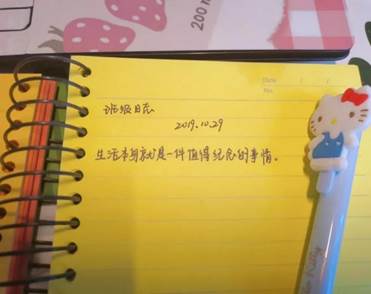 200 m
Date
No.
班级日志
2019.10.29
生活本身就是一件值得纪念的事情。
Kitty